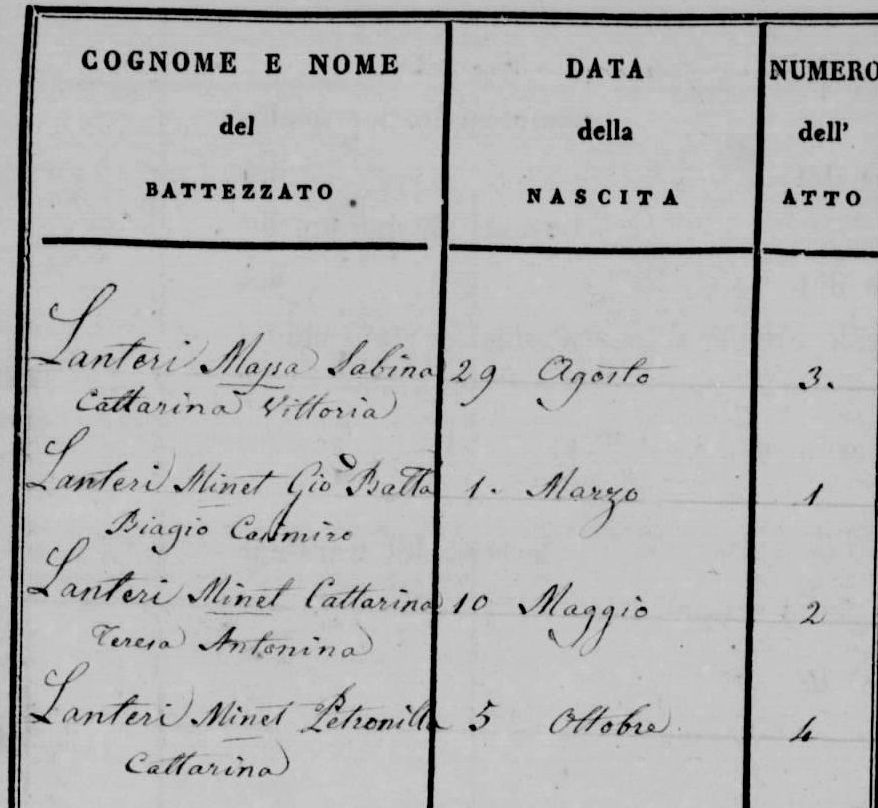 COGNOME E NOME
del
BATTEZZATO
DATA
della
NASCITA
NUMERO
dell'
ATTO
Lanteri Massa Sabina 29 Agosto 3.
Cattarina Vittoria
Lanteri Minet Gio Batta 1. Marzo 1
Biagio Casimiro
Lanteri Minet Cattarina 10 Maggio 2
Teresa Antonina
Lanteri Minet Petronilla 5 Ottobre 4
Cattarina